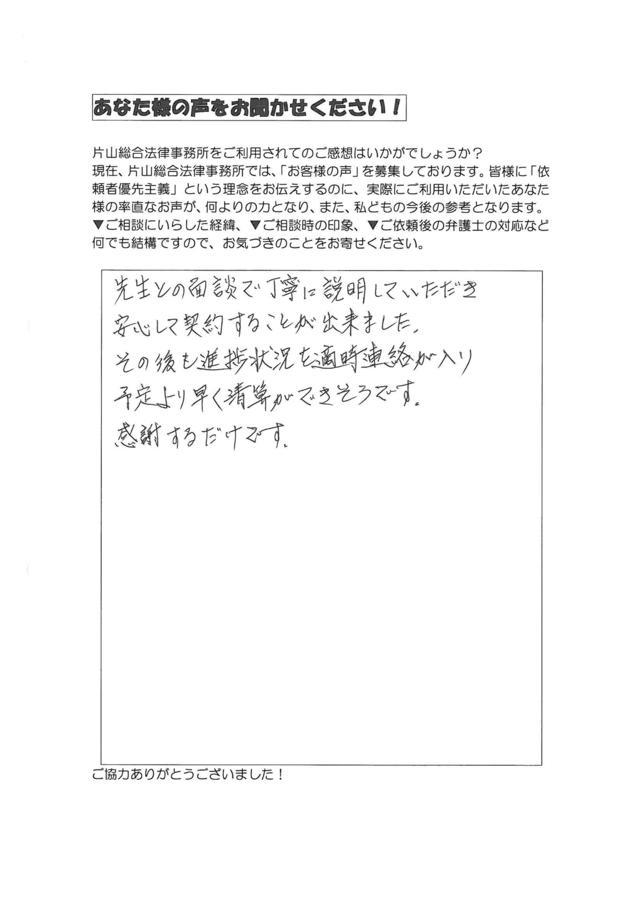 あなた様の声をお聞かせください！
片山総合法律事務所をご利用されてのご感想はいかがでしょうか？
現在、片山総合法律事務所では、「お客様の声」を募集しております。皆様に「依
頼者優先主義」という理念をお伝えするのに、実際にご利用いただいたあなた
様の率直なお声が、何よりの力となり、また、私どもの今後の参考となります。
▼ご相談にいらした経緯、▼ご相談時の印象、▼ご依頼後の弁護士の対応など
何でも結構ですので、お気づきのことをお寄せください。
先生との面談で丁寧に説明していただき
安心して契約することが出来ました。
その後も進捗状況を適時連絡が入り
予定より早く清算ができそうです。
感謝するだけです。
ご協力ありがとうございました！